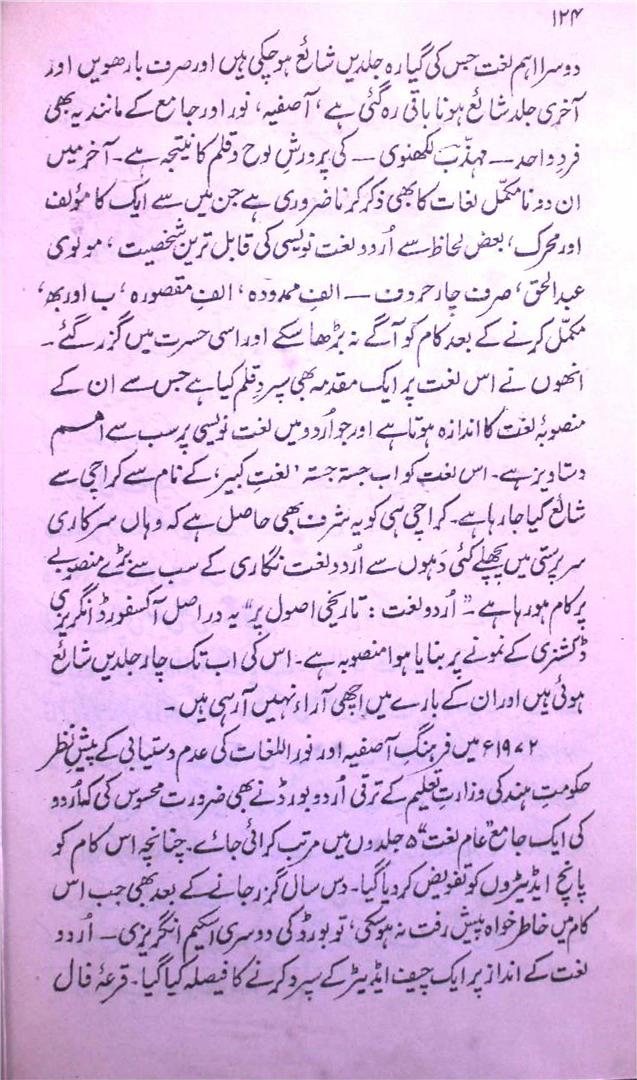 ۱۲۴
دوسرا اہم لغت جس کی گیارہ جلدیں شائع ہوچکی ہیں اور صرف بارھویں اور
آخری جلد شائع ہونا باقی رہ گئی ہے، آصفیہ، نور اور جامع کے مانند یہ بھی
فردِ واحد — مہذّب لکھنوی — کی پرورشِ لوح وقلم کا نتیجہ ہے۔ آخر میں
ان دو نا مکمّل لغات کا بھی ذکر کرنا ضروری ہے جن میں سے ایک کا مؤلف
اور محرک، بعض لحاظ سے اُردو لغت نویسی کی قابل ترین شخصیت، مولوی
عبدالحق، صرف چار حروف — الفِ ممدودہ، الفِ مقصورہ، ب اور بھ،
مکمّل کرنے کے بعد کام کو آگے نہ بڑھا سکے اور اسی حسرت میں گزر گئے۔
انھوں نے اس لغت پر ایک مقدمہ بھی سپردِ قلم کیا ہے جس سے ان کے
منصوبۂ لغت کا اندازہ ہوتا ہے اور جو اُردو میں لغت نویسی پر سب سے اہم
دستاویز ہے۔ اس لغت کو اب جستہ جستہ 'لغتِ کبیر' کے نام سے کراچی سے
شائع کیا جارہا ہے۔ کراچی ہی کو یہ شرف بھی حاصل ہے کہ وہاں سرکاری
سرپرستی میں پچھلے کئی دَہوں سے اُردو لغت نگاری کے سب سے بڑے منصوبے
پر کام ہورہا ہے۔ "اُردو لغت: تاریخی اصول پر" یہ دراصل آکسفورڈ انگریزی
ڈکشنری کے نمونے پر بنایا ہوا منصوبہ ہے۔ اس کی اب تک چار جلدیں شائع
ہوئی ہیں اور ان کے بارے میں اچھی آراء نہیں آرہی ہیں۔
۱۹۷۲ء میں فرہنگِ آصفیہ اور نور اللغات کی عدم دستیابی کے پیشِ نظر
حکومتِ ہند کی وزارتِ تعلیم کے ترقی اُردو بورڈ نے بھی ضرورت محسوس کی کہ اُردو
کی ایک جامع "عام لغت" ۵ جلدوں میں مرتب کرائی جائے۔ چنانچہ اس کام کو
پانچ ایڈیٹروں کو تفویض کردیا گیا۔ دس سال گزر جانے کے بعد بھی جب اس
کام میں خاطر خواہ پیش رفت نہ ہوسکی، تو بورڈ کی دوسری اسکیم انگریزی — اُردو
لغت کے انداز پر ایک چیف ایڈیٹر کے سپرد کرنے کا فیصلہ کیا گیا۔ قرعۂ فال